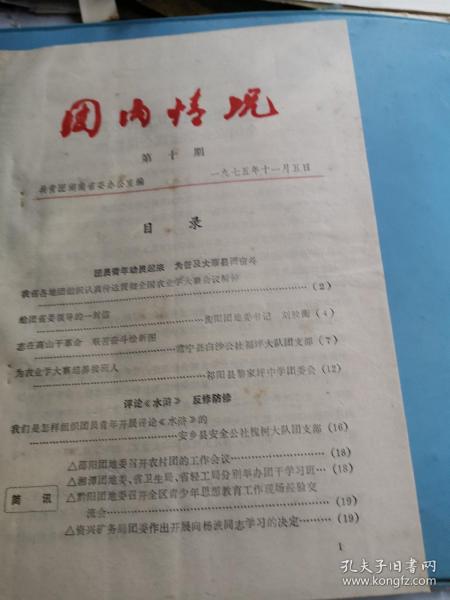 团内情况
第十期
共青团湖南省委办公室编
一九七五年十一月五日
目录
团员青年动员起来 为普及大寨县而奋斗
我省各地团组织认真传达贯彻全国农业学大寨会议精神
(2)
给团省委领导的一封信
衡阳团地委书记 (4)
志在高山干革命 艰苦奋斗绘新图
遂宁县白沙公社福坪大队团支部 (7)
为农业学大寨培养接班人
祁阳县黎家坪中学团委会 (12)
评论《水浒》 反修防修
我们是怎样组织团员青年开展评论《水浒》的
安乡县安全公社槐树大队团支部 (16)
△邵阳团地委召开农村团的工作会议 (18)
简讯
△湘潭团地委、省卫生局、省轻工局分别举办团干学习班 (18)
△黔阳团地委召开全区青少年思想教育工作现场经验交
流会 (19)
△资兴矿务局团委作出开展向杨波同志学习的决定 (19)
1
孔夫子旧书网
www.kongfz.com